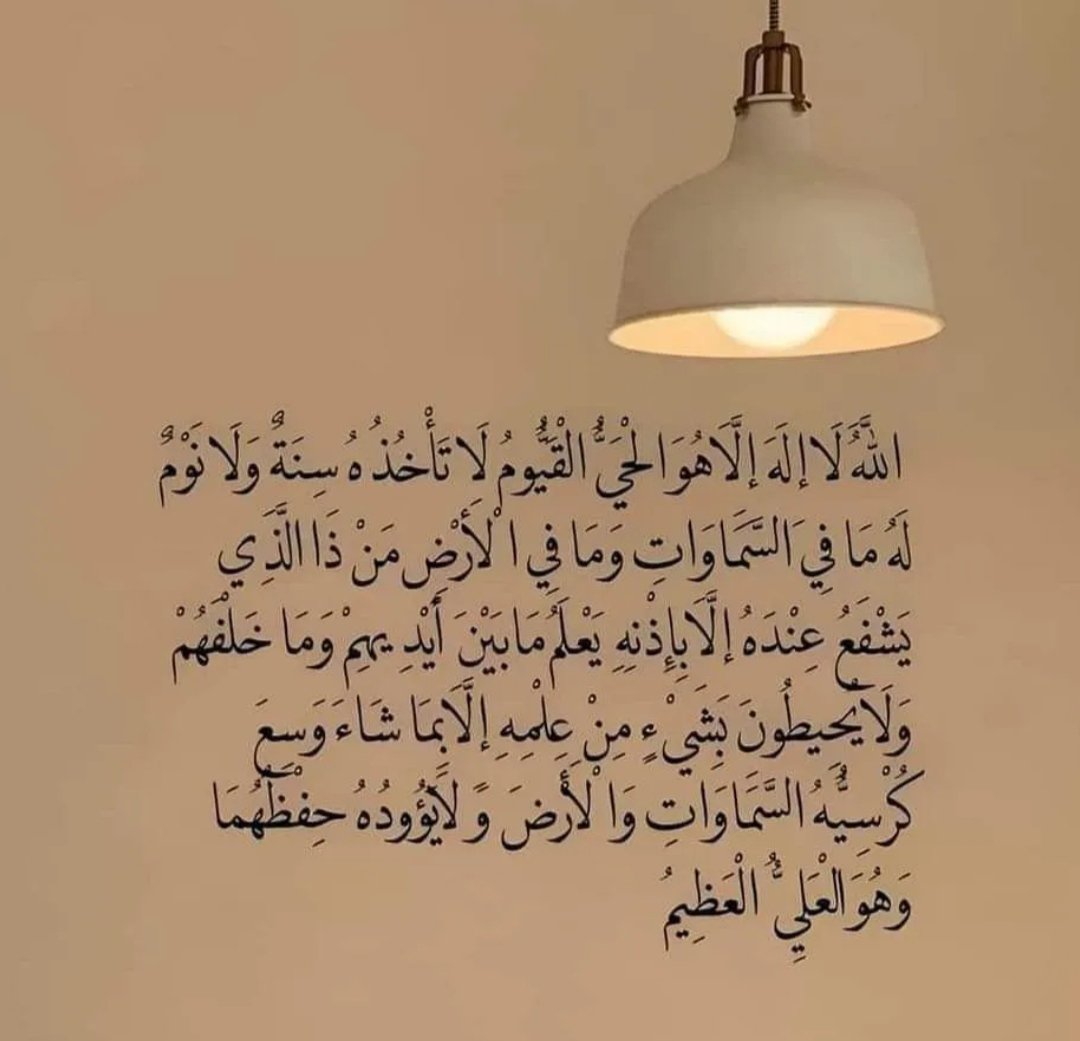 اللَّهُ لَا إِلَهَ إِلَّا هُوَ الْحَيُّ الْقَيُّومُ لَا تَأْخُذُهُ سِنَةٌ وَلَا نَوْمٌ
لَهُ مَا فِي السَّمَاوَاتِ وَمَا فِي الْأَرْضِ مَنْ ذَا الَّذِي
يَشْفَعُ عِنْدَهُ إِلَّا بِإِذْنِهِ يَعْلَمُ مَا بَيْنَ أَيْدِيهِمْ وَمَا خَلْفَهُمْ
وَلَا يُحِيطُونَ بِشَيْءٍ مِنْ عِلْمِهِ إِلَّا بِمَا شَاءَ وَسِعَ
كُرْسِيُّهُ السَّمَاوَاتِ وَالْأَرْضَ وَلَا يَؤُودُهُ حِفْظُهُمَا
وَهُوَ الْعَلِيُّ الْعَظِيمُ